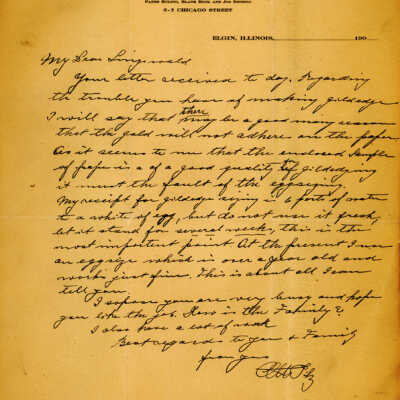 PAPER RULING, BLANK BOOK AND JOB BINDING
5-7 CHICAGO STREET
ELGIN, ILLINOIS, 190
My Dear
Your letter received to day. Regarding
the trouble you have of making giltedge
I will say that there may be a good many reason
that the gold will not adhere on the paper
As it seems to me that the enclosed sample
of paper is of a good quality for giltedging
it must the fault of the eggsizing.
My receipt for giltedge sizing is 6 parts of water
to a white of egg, but do not use it fresh,
let it stand for several weeks, this is the
most important point. At the present I use
an eggsize which is over a year old and
works just fine. This is about all I can
tell you.
I supose you are very busy and hope
you like the job. How is the Family?
I also have a lot of work
Best regards to you & Family
from yours